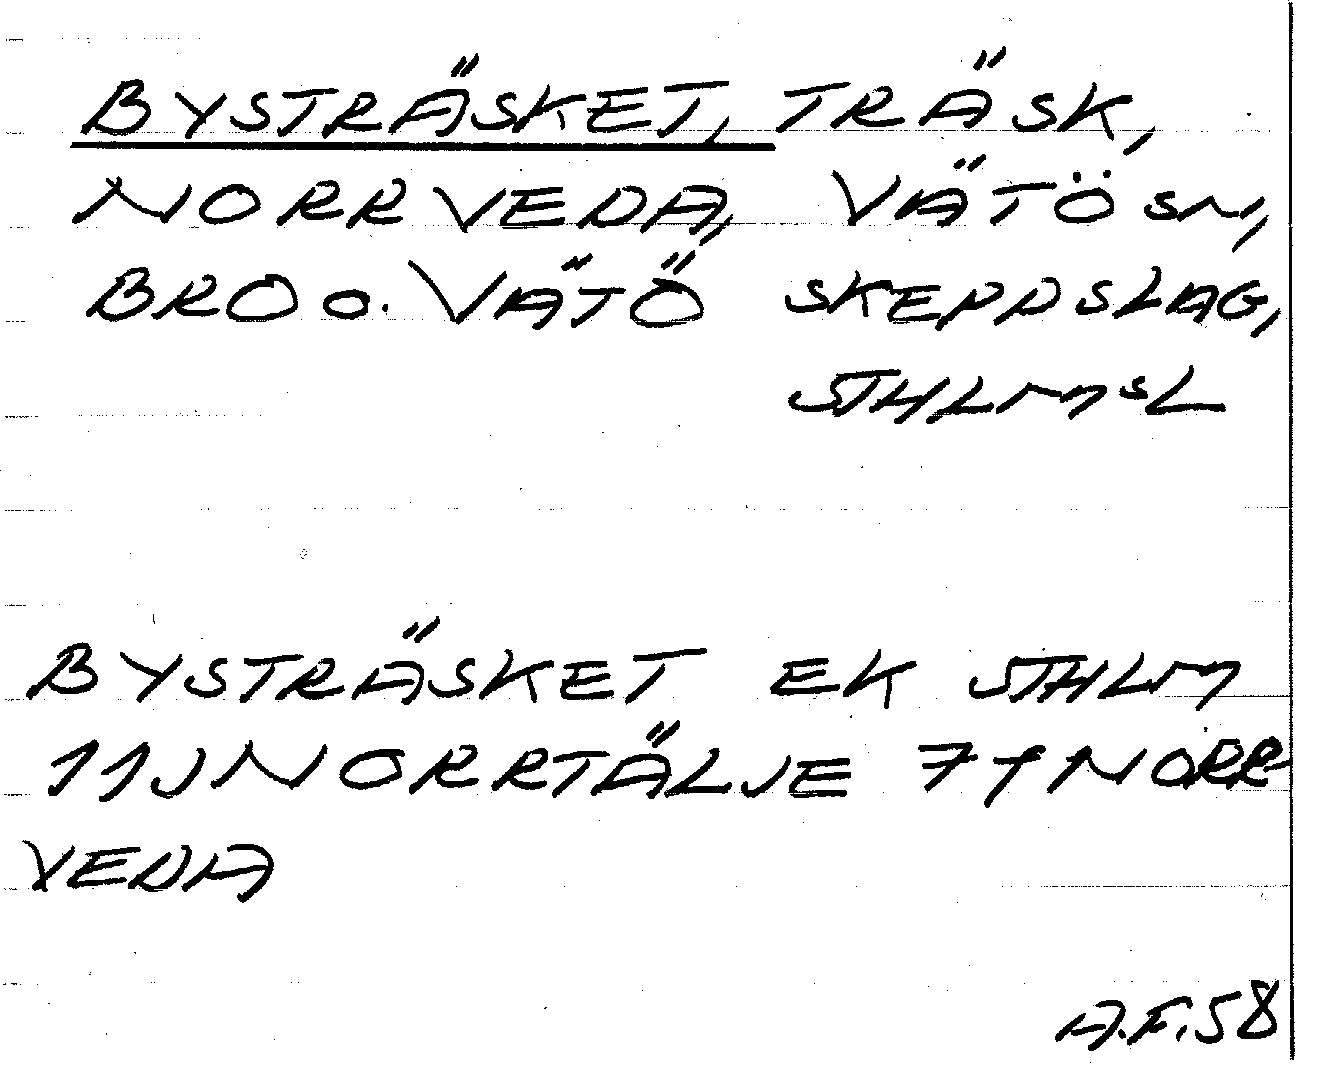 BYSTRÄSKET, TRÄSK,
NORRVEDA, VÄTÖ SN,
BRO O. VÄTÖ SKEPPSLAG,
STHLMSL
BYSTRÄSKET EK STHLM
11J NORRTÄLJE 7f NORR
VEDA
A.F. 58